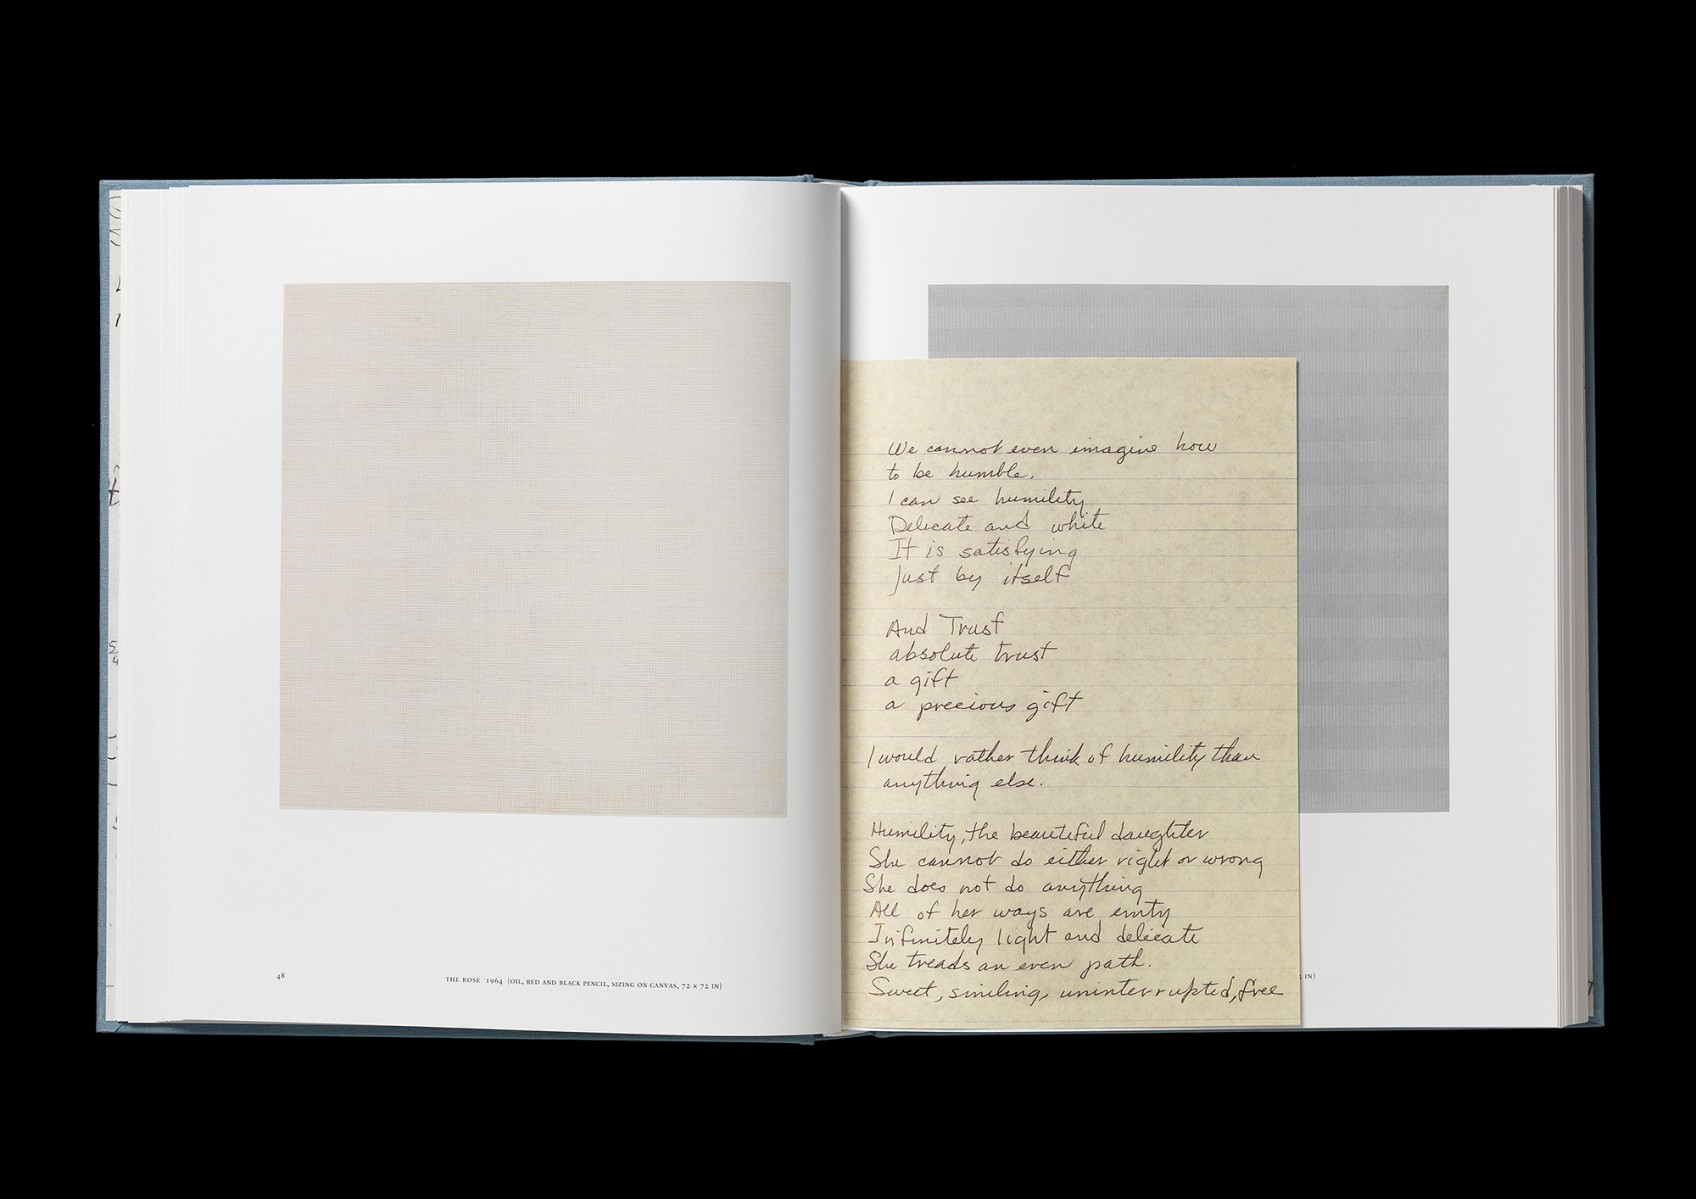 48
THE ROSE 1964 (OIL, RED AND BLACK PENCIL, SIZING ON CANVAS, 72 × 72 IN)
We cannot even imagine how
to be humble.
I can see humility
Delicate and white
It is satisfying
Just by itself
And Trust
absolute trust
a gift
a precious gift
I would rather think of humility than
anything else.
Humility, the beautiful daughter
She cannot do either right or wrong
She does not do anything
All of her ways are emty
Infinitely light and delicate
She treads an even path.
Sweet, smiling, uninterrupted, free
IN)